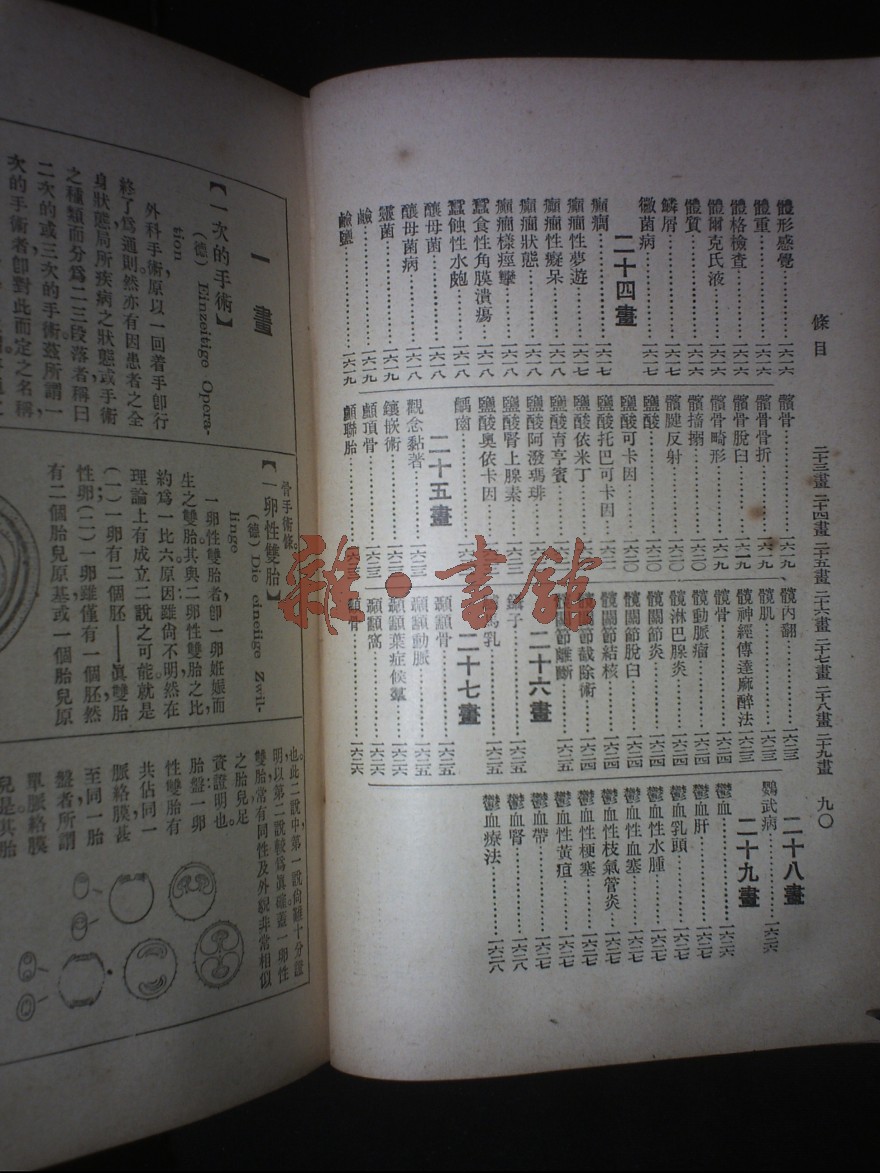 條目
二十三畫 二十四畫 二十五畫 二十六畫 二十七畫 二十八畫 二十九畫
九〇
體形感覺……一六一六
體重……一六一六
體格檢查……一六一六
體爾克氏液……一六一六
體質……一六一六
鱗屑……一六一七
黴菌病……一六一七
二十四畫
癲癇……一六一七
癲癇性夢遊……一六一七
癲癇性癡呆……一六一八
癲癇狀態……一六一八
癲癇樣痙攣……一六一八
蠶食性角膜潰瘍……一六一八
蠶蝕性水皰……一六一八
釀母菌……一六一八
釀母菌病……一六一八
靈菌……一六一九
鹼……一六一九
鹼鹽……一六一九
髕骨……一六一九
髕骨骨折……一六一九
髕骨脫臼……一六一九
髕骨畸形……一六一九
髕搐搦……一六二〇
髕腱反射……一六二〇
鹽酸……一六二〇
鹽酸可卡因……一六二〇
鹽酸托巴可卡因
鹽酸依米丁
鹽酸育亨賓
鹽酸阿潑瑪琲
鹽酸腎上腺素
鹽酸奧依卡因
齲齒
二十五畫
觀念黏著……一六二三
鑲嵌術……一六二三
顱頂骨……一六二三
顱聯胎
髖內翻……一六二三
髖肌……一六二三
髖神經傳達麻醉法……一六二三
髖骨……一六二四
髖動脈瘤……一六二四
髖淋巴腺炎……一六二四
髖關節炎……一六二四
髖關節脫臼……一六二四
髖關節結核……一六二四
髖關節截除術……一六二四
髖關節離斷……一六二五
二十六畫
鑷子……一六二五
馬乳……一六二五
二十七畫
顳顬骨……一六二五
顳顬動脈……一六二五
顳顬葉症候羣……一六二六
顳顬窩……一六二六
顳骨……一六二六
二十八畫
鸚武病……一六二六
二十九畫
鬱血……一六二六
鬱血肝……一六二七
鬱血乳頭……一六二七
鬱血性水腫……一六二七
鬱血性血塞……一六二七
鬱血性枝氣管炎……一六二七
鬱血性梗塞……一六二七
鬱血性黃疸……一六二七
鬱血帶……一六二七
鬱血腎……一六二八
鬱血療法……一六二八
一畫
【一次的手術】
(德) Einzeitige Opera-
tion
外科手術原以一回着手卽行
終了,爲通則然亦有因患者之全
身狀態局所疾病之狀態或手術
之種類而分爲二三段落者稱曰
二次的或三次的手術茲所謂一
次的手術者卽對此而定之名稱
骨手術條。
【一卵性雙胎】
(德) Die eineiige Zwil-
linge
一卵性雙胎者卽一卵妊娠而
生之雙胎其與二卵性雙胎之比
約爲一比六原因雖尙不明然在
理論上有成立二說之可能就是
(一)一卵有二個胚——眞雙胎
性卵;(二)一卵雖僅有一個胚然
有二個胎兒原基或一個胎兒原
也。此二說中,第一說尙難十分證
明,以第二說較爲眞確蓋一卵性
雙胎常有同性及外貌非常相似
之胎兒足
資證明也。
胎盤一卵
性雙胎有
共佔同一
脈絡膜甚
至同一胎
盤者所謂
單脈絡膜
兒是其胎
雜·書館